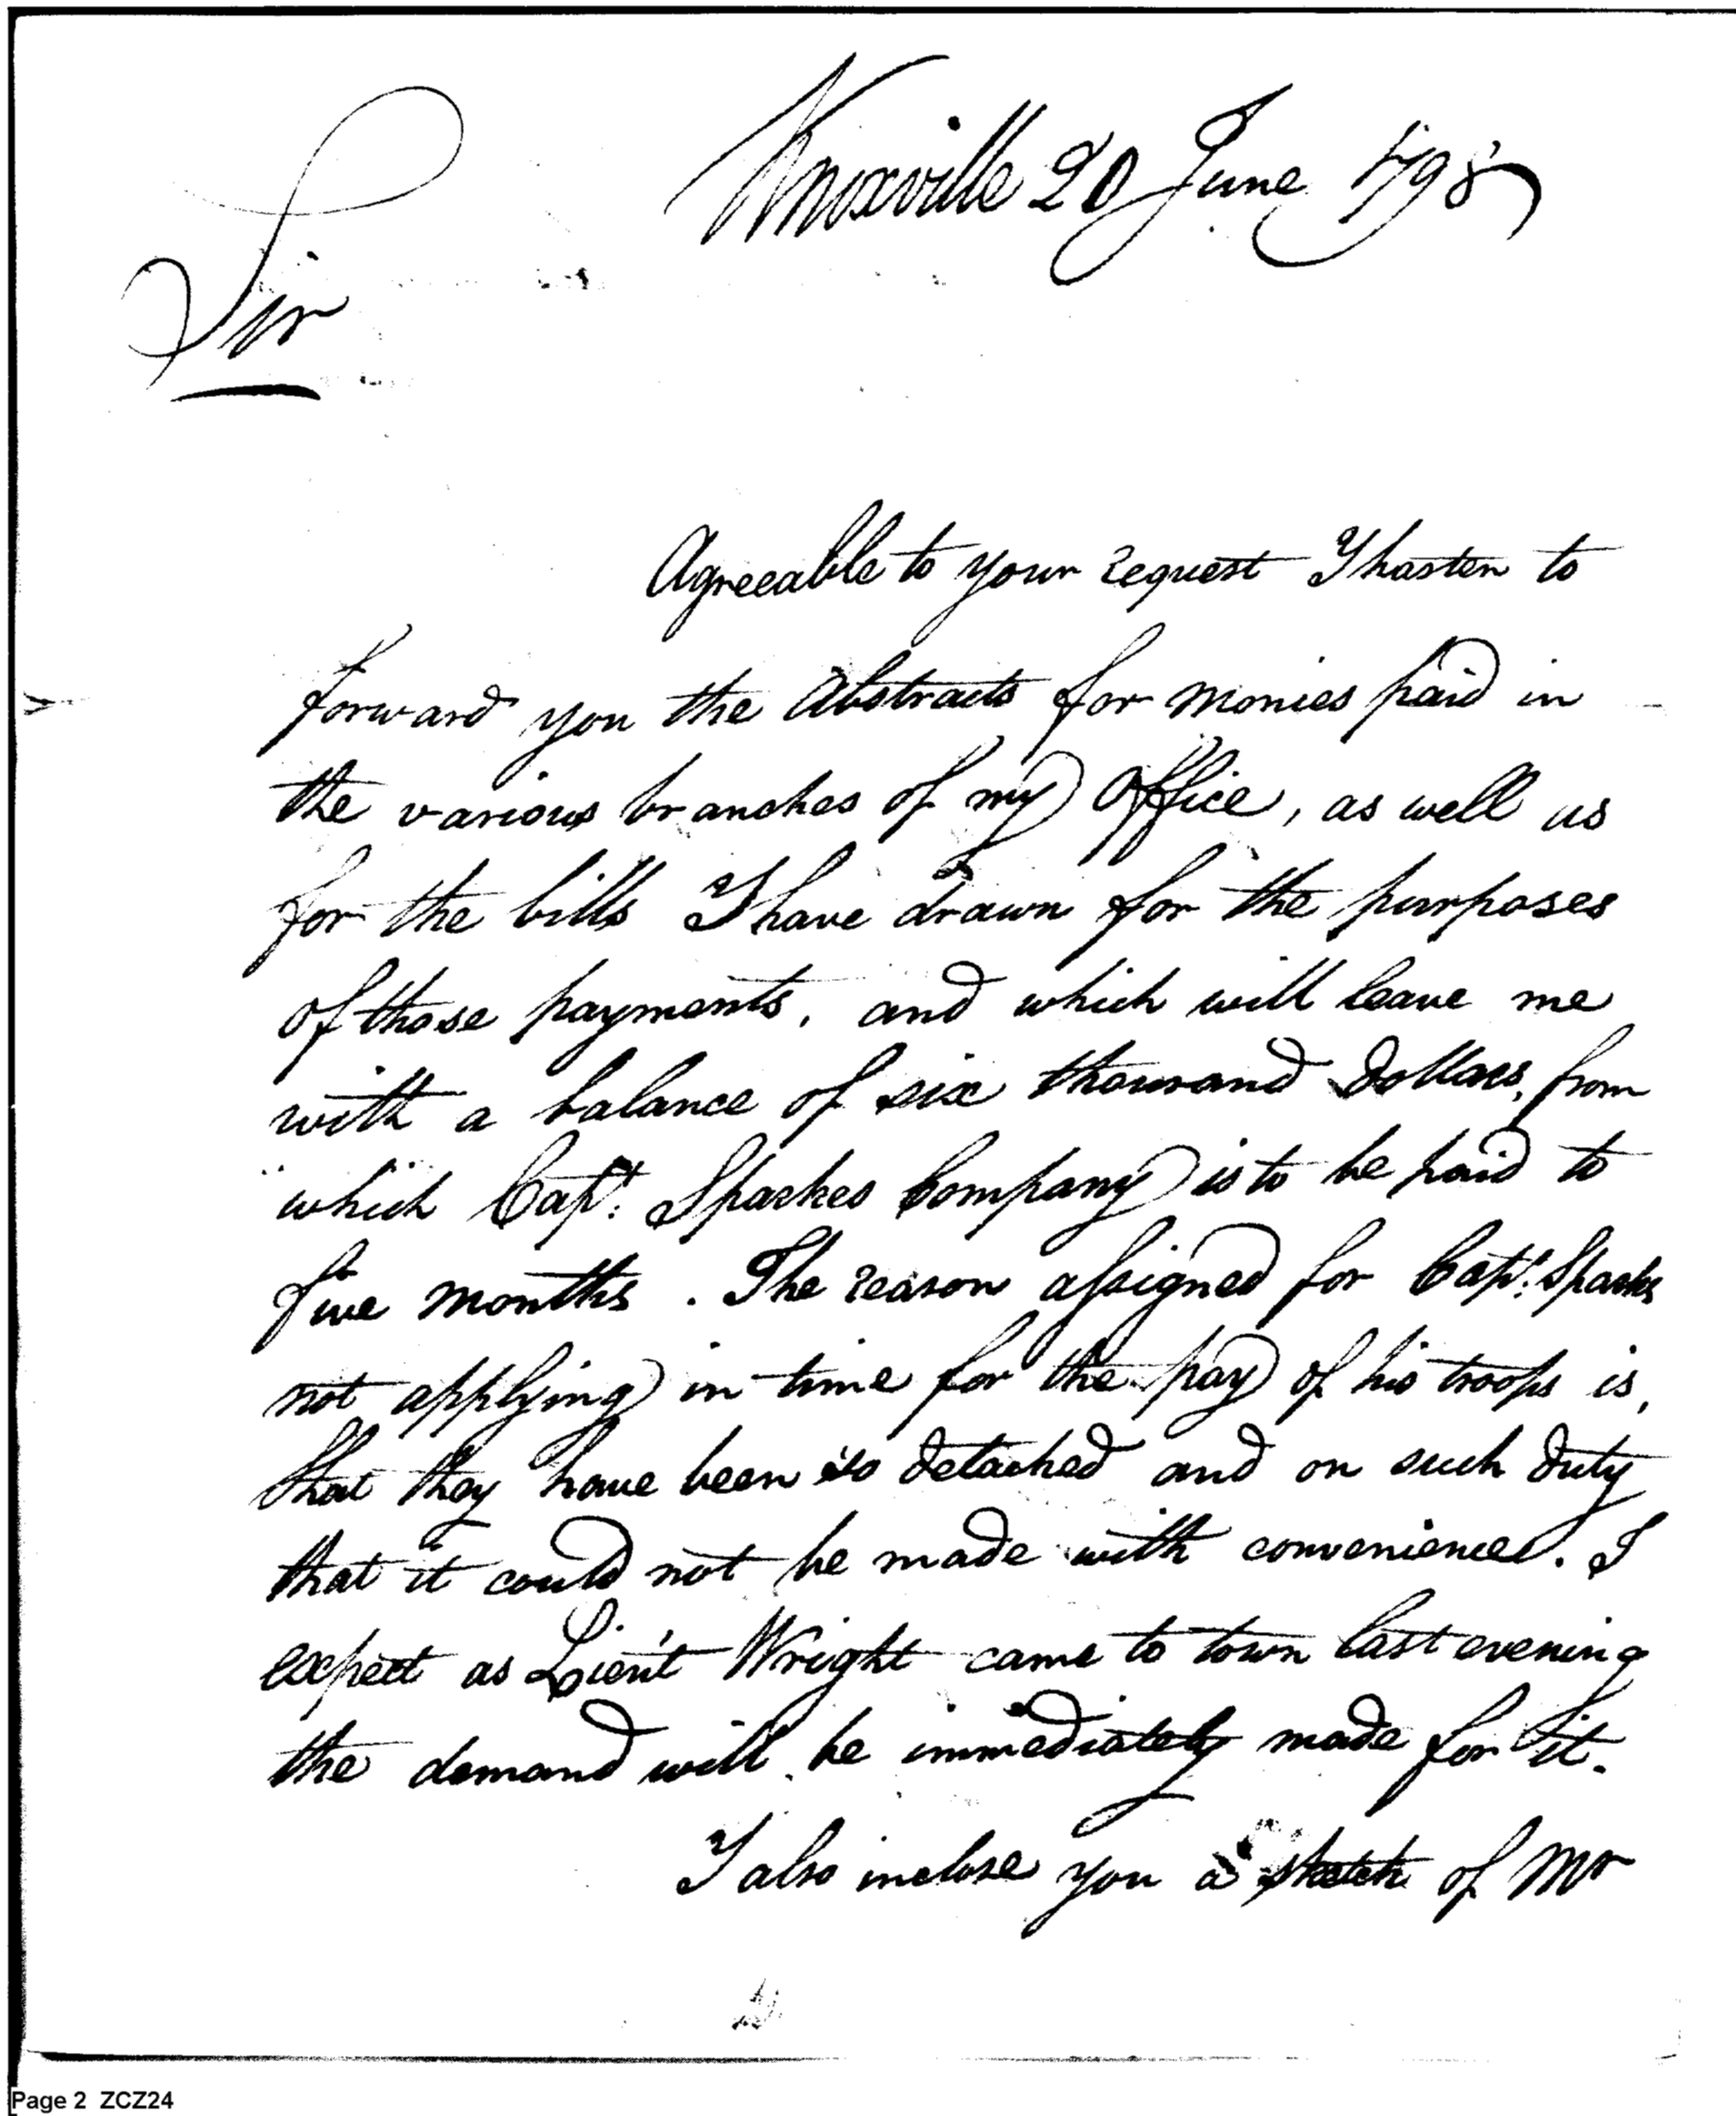 Knoxville 20 June 1798
Sir
Agreeable to your request I hasten to
forward you the Abstracts for monies paid in
the various branches of my Office, as well as
for the bills I have drawn for the purposes
of those payments, and which will leave me
with a balance of six thousand Dollars, from
which Capt. Sparkes Company is to be paid to
five months. The reason assigned for Capt. Sparks
not applying in time for the pay of his troops is,
that they have been so detached and on such duty
that it could not be made with convenience. I
expect as Lieut Wright came to town last evening
the demand will be immediately made for it.
I also inclose you a sketch of Mr
Page 2 ZCZ24